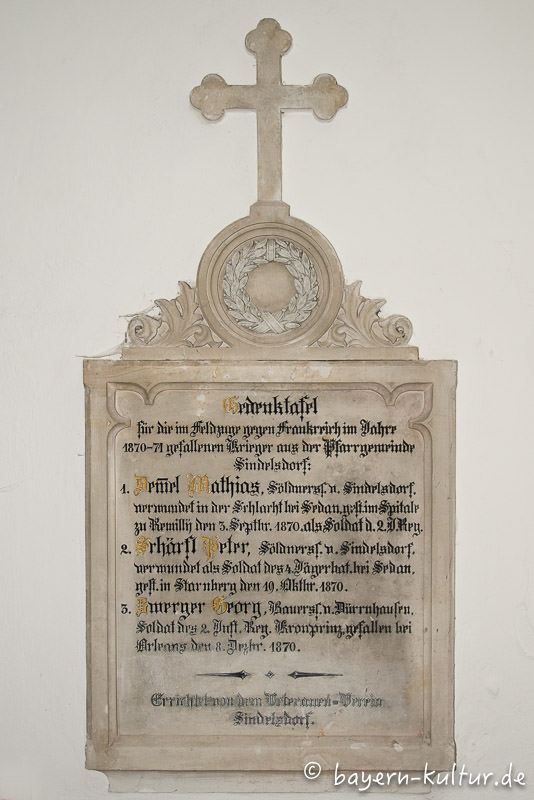 Gedenktafel
für die im Feldzuge gegen Frankreich im Jahre
1870-71 gefallenen Krieger aus der Pfarrgemeinde
Sindelsdorf:
1. Dem̅el Mathias, Söldnerss. v. Sindelsdorf,
verwundet in der Schlacht bei Sedan, gest. im Spitale
zu Remilly den 3. Septbr. 1870. als Soldat d. 2. J. Reg.
2. Schärfl Peter, Söldnerss. v. Sindelsdorf.
verwundet als Soldat des 4. Jägerbat. bei Sedan,
gest. in Starnberg den 19. Oktbr. 1870.
3. Zwerger Georg, Bauerss. v. Dürrnhausen,
Soldat des 2. Inft. Reg. Kronprinz, gefallen bei
Orleans den 8. Dezbr. 1870.
Errichtet von dem Veteranen-Verein
Sindelsdorf.
© bayern-kultur.de